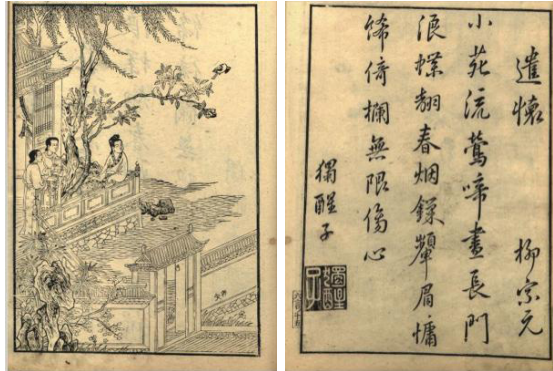 遣懷　柳宗元
小苑流鶯啼晝長門
浪蝶翻春烟鏁顰眉慵
飾倚欄無限傷心
獨醒子